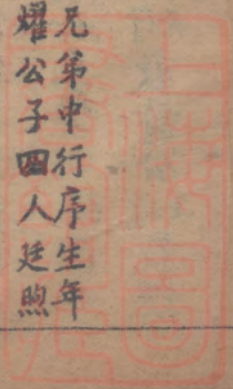 兄弟中行序生年
耀公子四人廷煦